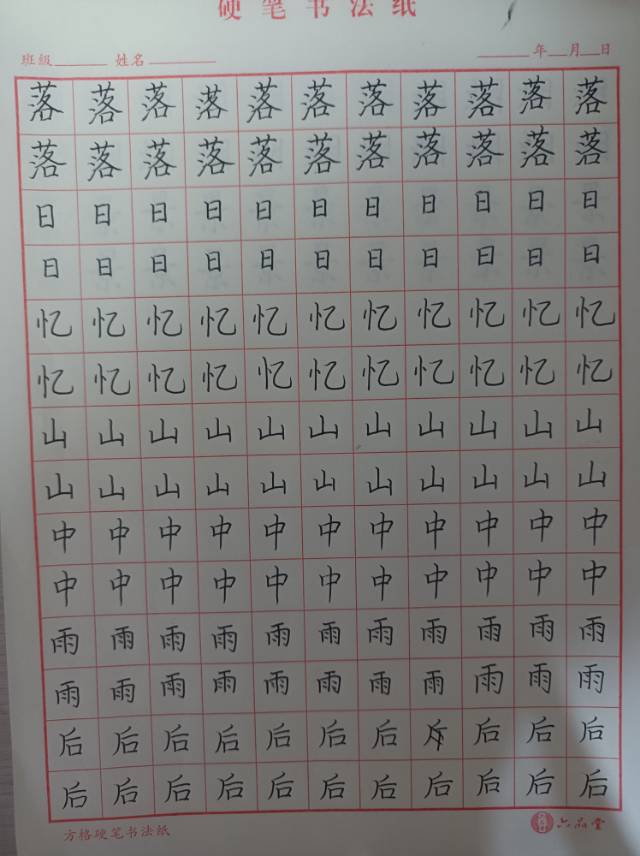 硬笔书法纸
班级 姓名 年 月 日
落 落 落 落 落 落 落 落 落 落 落
落 落 落 落 落 落 落 落 落 落 落
日 日 日 日 日 日 日 日 日 日 日
日 日 日 日 日 日 日 日 日 日 日
忆 忆 忆 忆 忆 忆 忆 忆 忆 忆 忆
忆 忆 忆 忆 忆 忆 忆 忆 忆 忆 忆
山 山 山 山 山 山 山 山 山 山 山
山 山 山 山 山 山 山 山 山 山 山
中 中 中 中 中 中 中 中 中 中 中
中 中 中 中 中 中 中 中 中 中 中
雨 雨 雨 雨 雨 雨 雨 雨 雨 雨 雨
雨 雨 雨 雨 雨 雨 雨 雨 雨 雨 雨
后 后 后 后 后 后 后 后 后 后
后 后 后 后 后 后 后 后 后 后 后
方格硬笔书法纸 六品堂